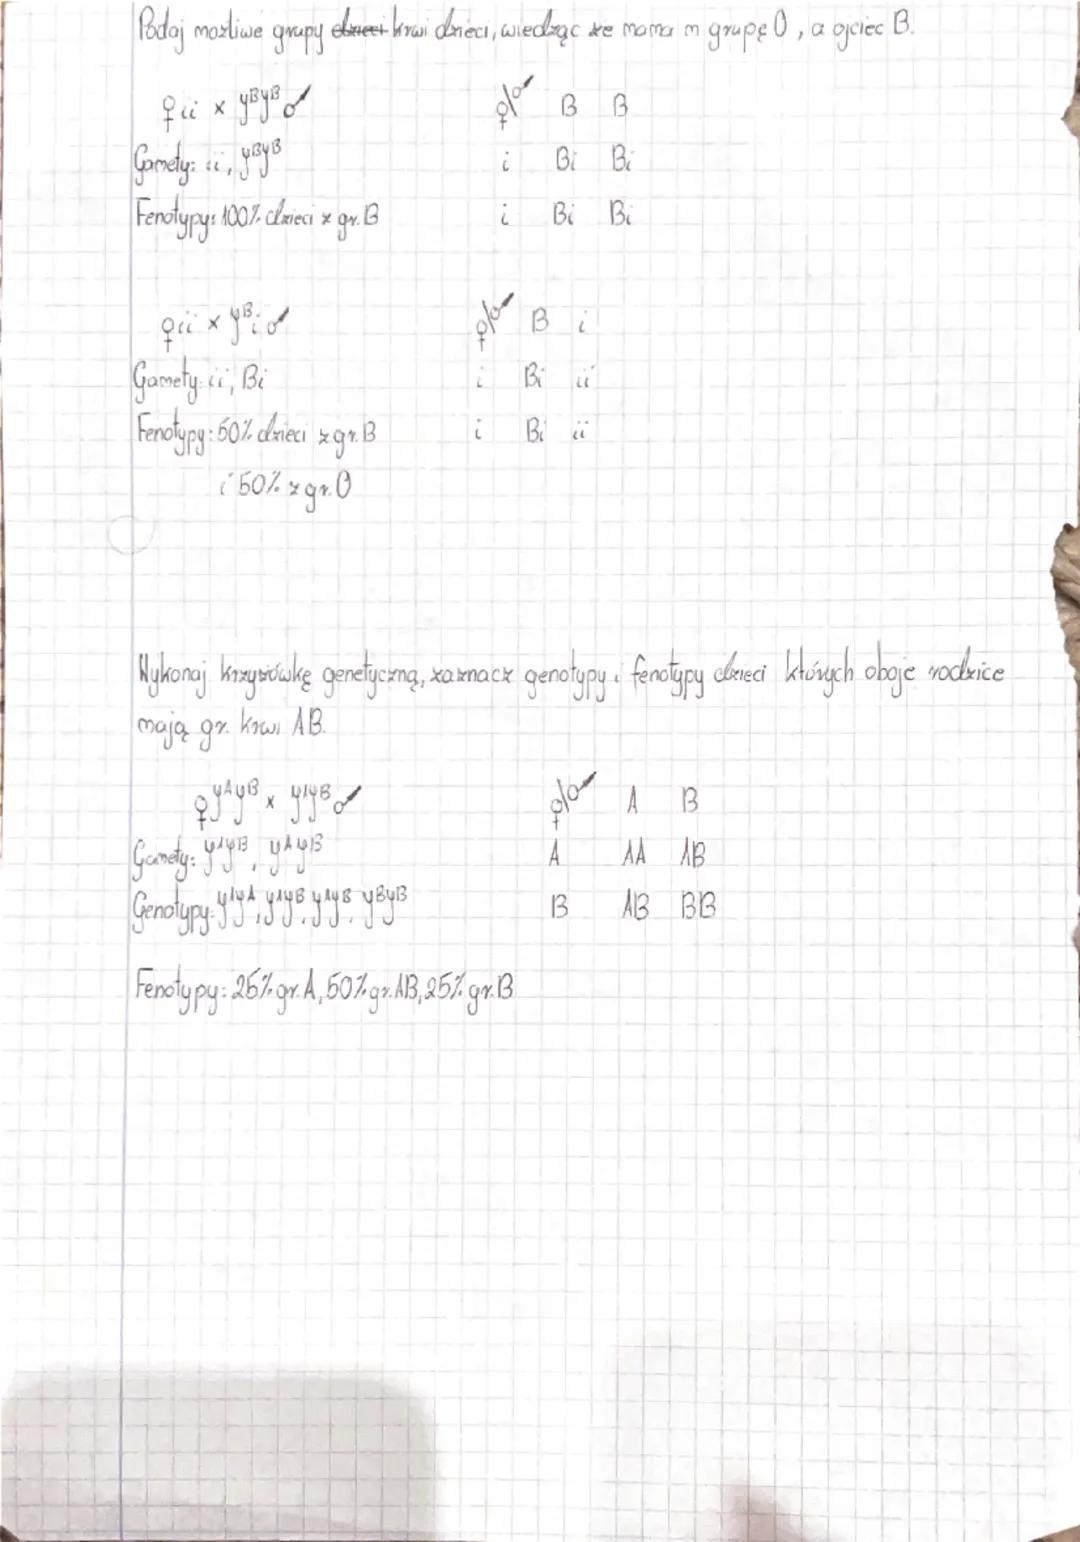 Podaj możliwe grupy dzieci krwi dzieci, wiedząc że mama m grupę 0, a ojciec B.
♀ ii × yᴮyᴮ ♂
♀/♂ B B
Gamety: ii, yᴮyᴮ
i Bi Bi
Fenotypy: 100% dzieci z gr. B
i Bi Bi
♀ ii × yᴮi ♂
♀/♂ B i
Gamety: ii, Bi
i Bi ii
Fenotypy: 50% dzieci z gr. B
i Bi ii
i 50% z gr. 0
Wykonaj krzyżówkę genetyczną, zaznacz genotypy i fenotypy dzieci których oboje rodzice
mają gr. krwi AB.
♀ yᴬyᴮ × yᴬyᴮ ♂
♀/♂ A B
Gamety: yᴬyᴮ, yᴬyᴮ
A AA AB
Genotypy: yᴬyᴬ, yᴬyᴮ, yᴬyᴮ, yᴮyᴮ
B AB BB
Fenotypy: 25% gr. A, 50% gr. AB, 25% gr. B